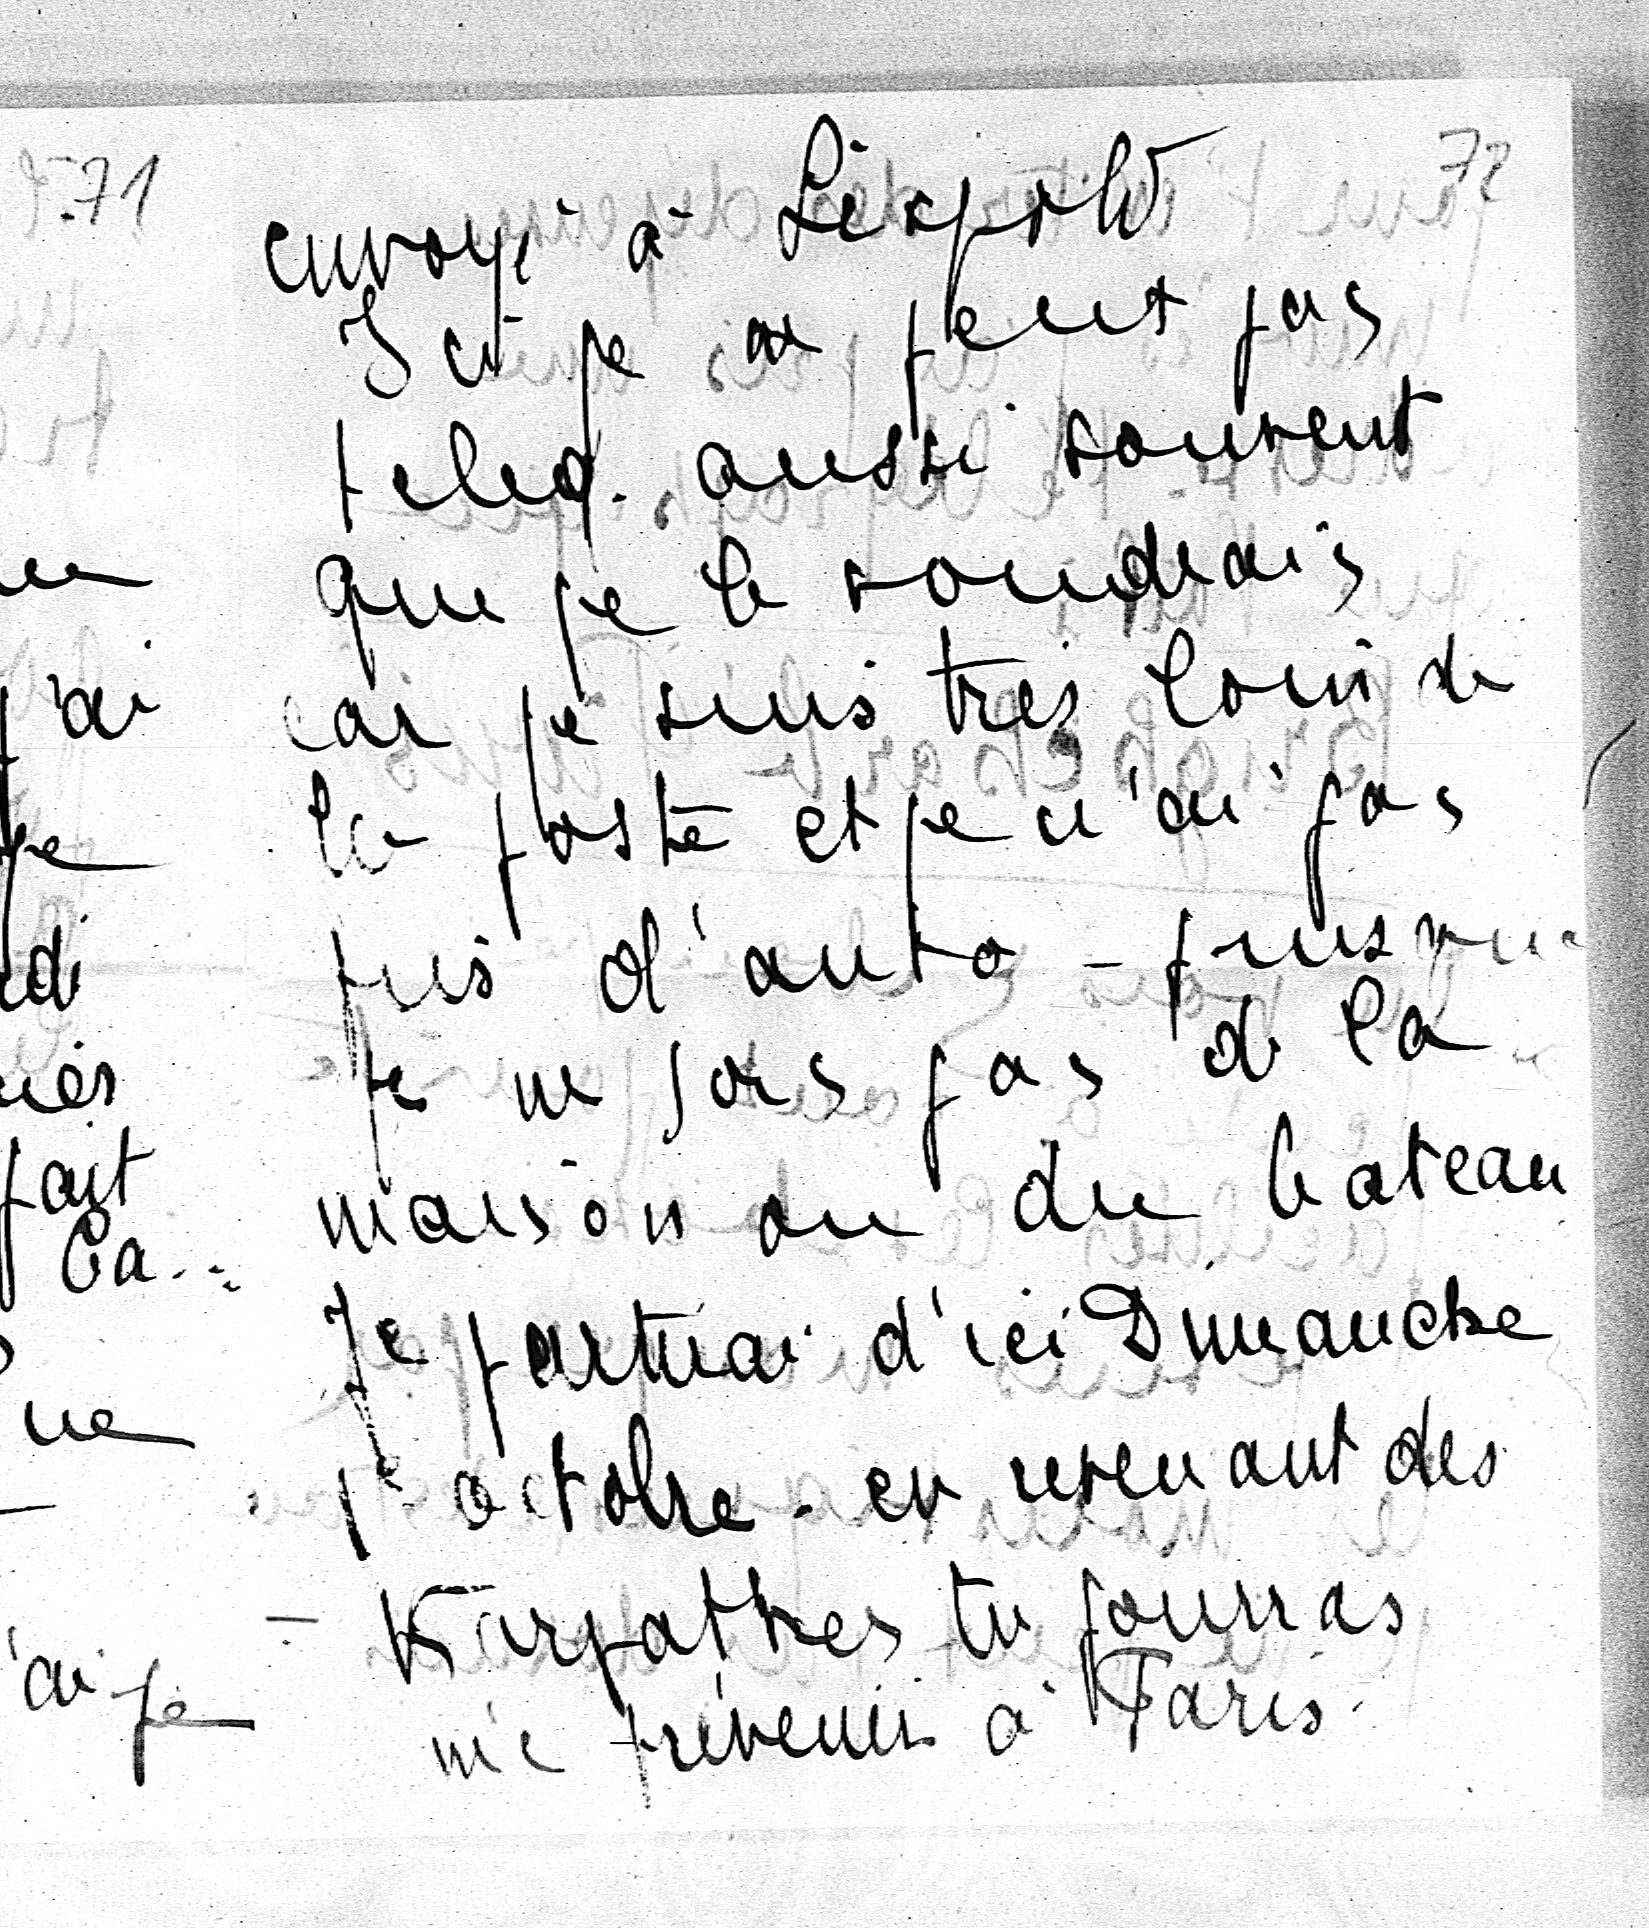 71
72
envoyé à Léopold
Ici je ne peux pas
teleg. aussi souvent
que je le voudrais
car je suis très loin de
la poste et je n'ai pas
pris d'auto - puisque
je ne sors pas de la
maison ou du bateau
Je partirai d'ici Dimanche
1er octobre - en revenant des
- Karpathes tu pourras
me prévenir à Paris.
j'ai
je
di
fait
la...
ne
'ai je